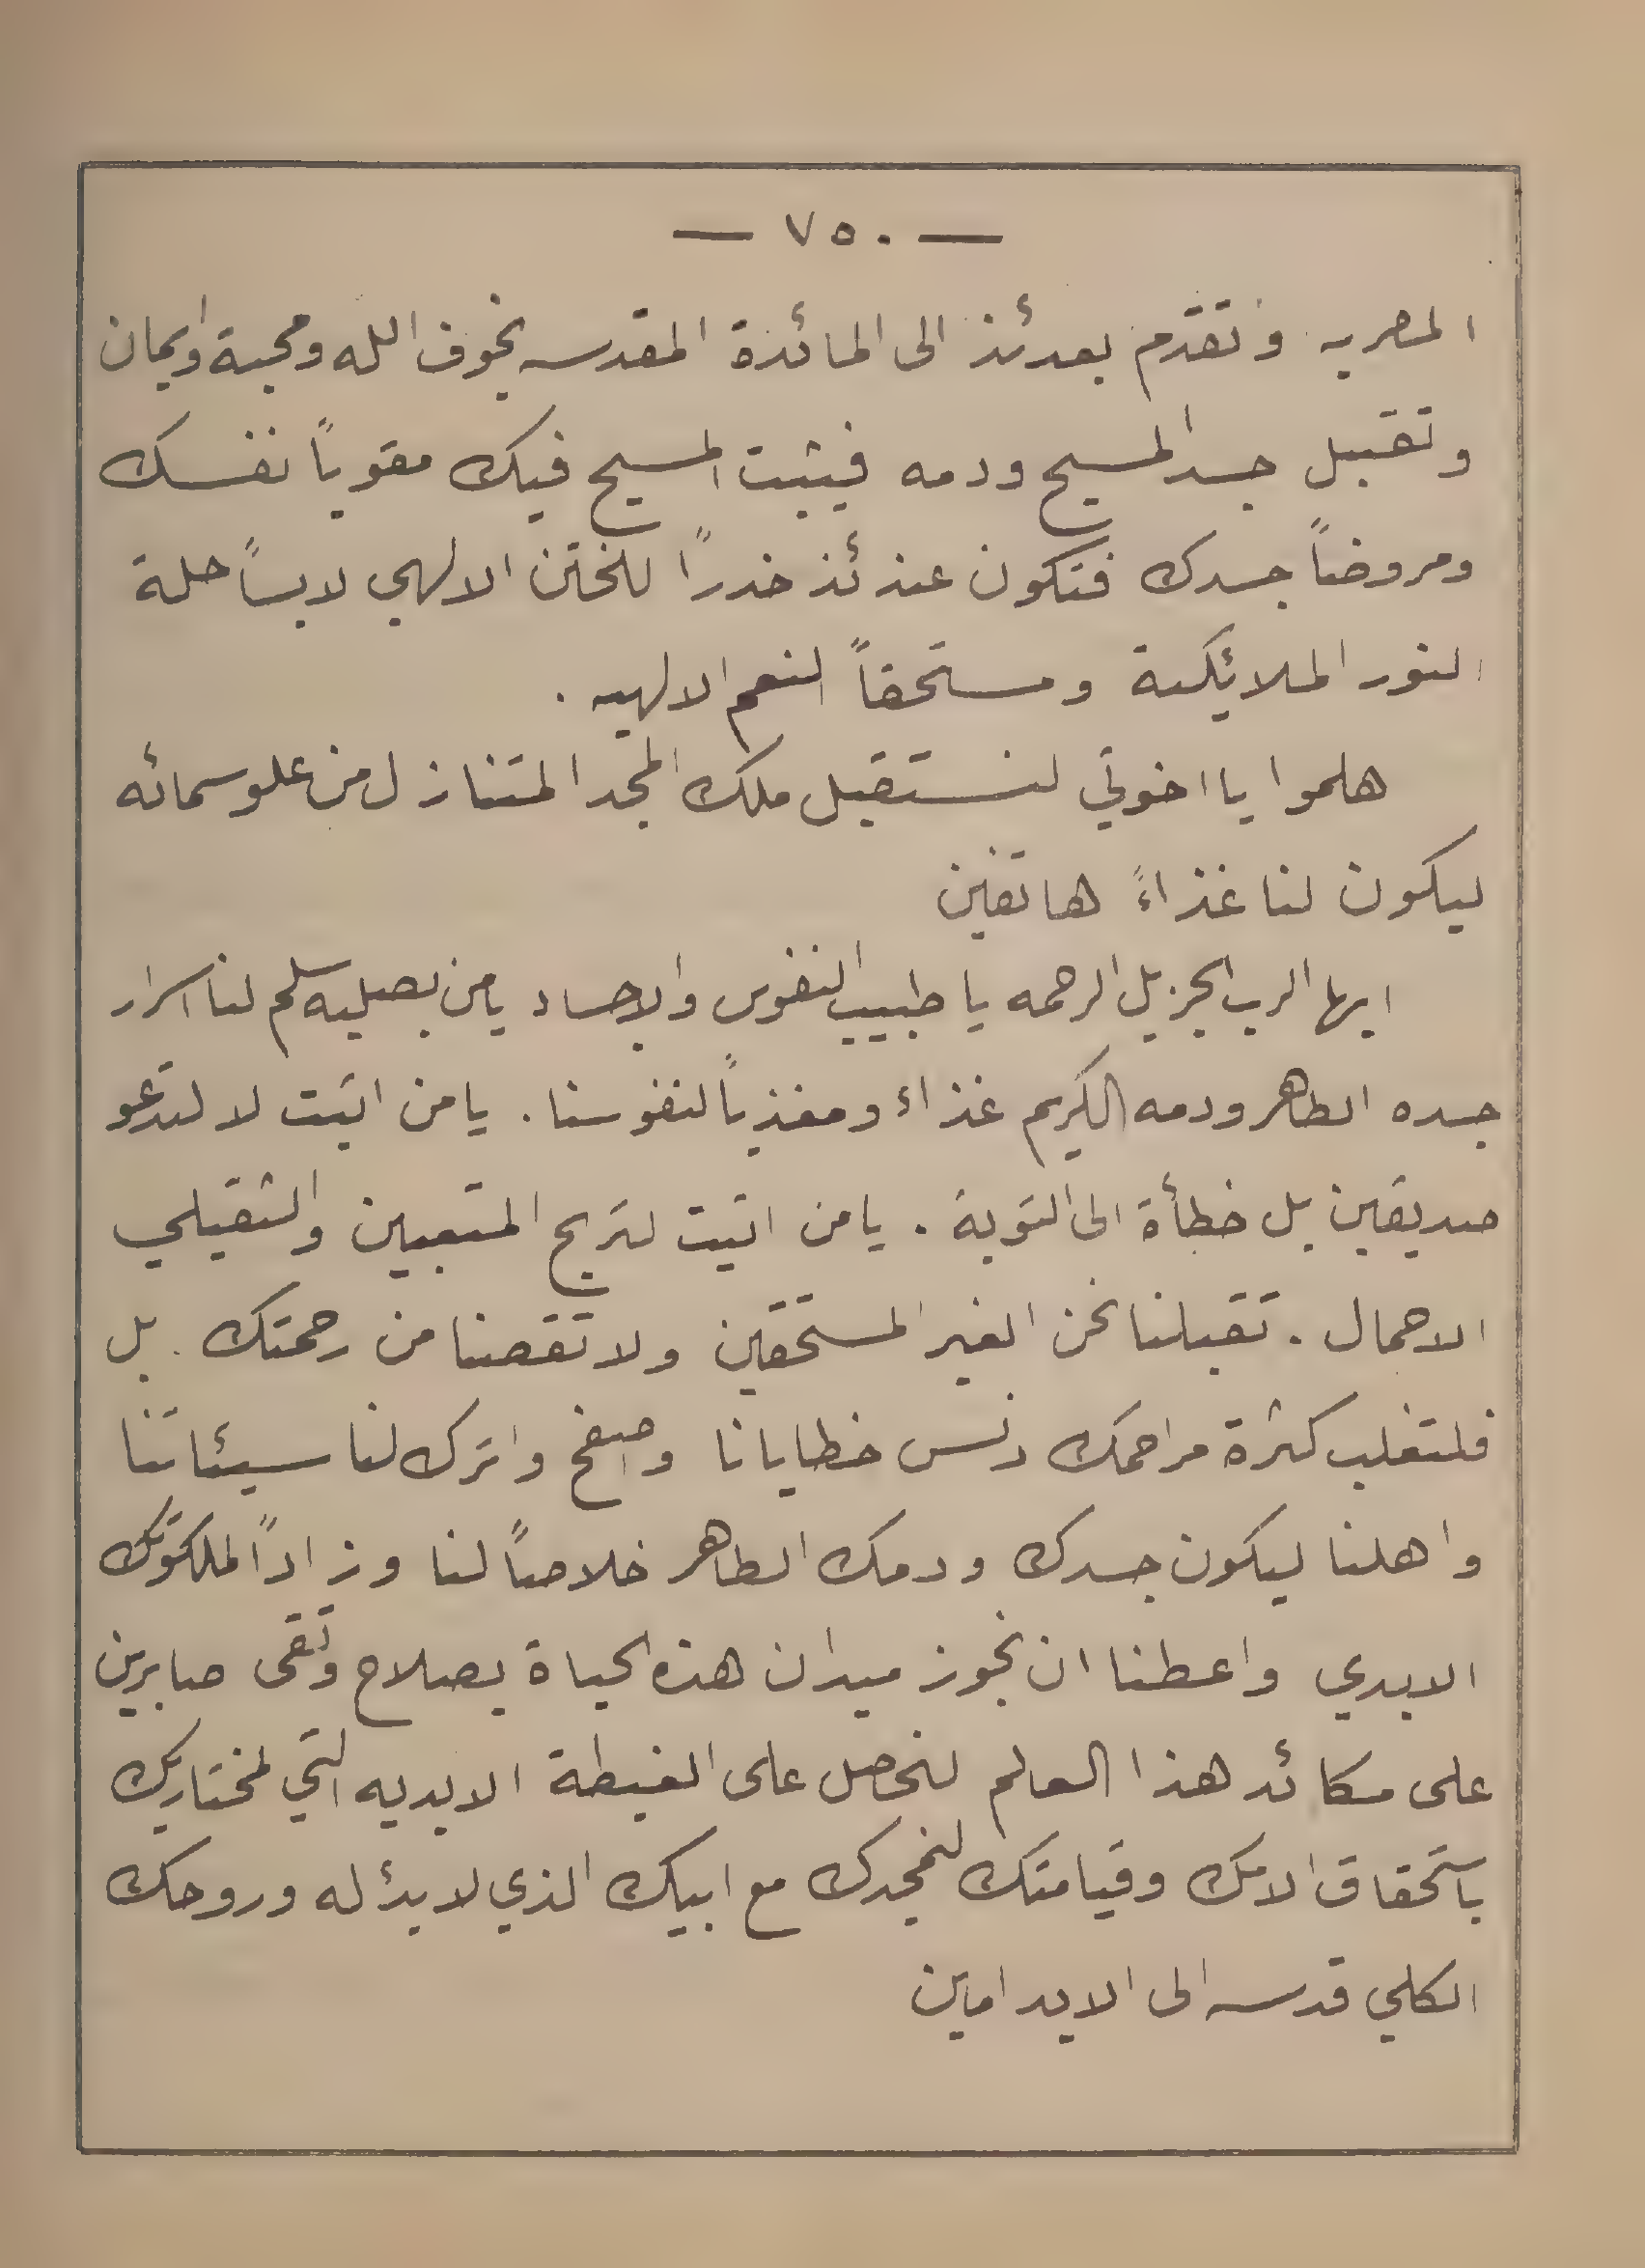 — ٧٥٠ —
المصريه وتقدّم بعدئذ الى المائدة المقدسه بخوف الله ومحبة وايمان
وتقبل جسد المسيح ودمه فيثبت المسيح فيك مقوياً نفسك
ومروضاً جسدك فتكون عندئذ خدراً للختن الالهي لابساً حلة
النور الملائيكية ومستحقاً النعم الالهيه .
هلموا يا اخوتي لنستقبل ملك المجد المتنازل من علو سمائه
ليكون لنا غذاءً هاتفين
ايها الرب الجزيل الرحمه يا طبيب النفوس والاجساد يا من بصليبه سلم لنا اسرار
جسده الطاهر ودمه الكريم غذاء ومغذياً لنفوسنا . يا من اتيت لا لتدعو
صديقين بل خطأة الى التوبة . يا من اتيت لتريح المتعبين والثقيلي
الاحمال . تقبلنا نحن الغير المستحقين ولا تقصنا من رحمتك . بل
فلتغلب كثرة مراحمك دنس خطايانا واصفح واترك لنا سيئاتنا
واهلنا ليكون جسدك ودمك الطاهر خلاصاً لنا وزاداً لملكوتك
الابدي واعطنا ان نجوز ميدان هذه الحياة بصلاح وتقى صابرين
على مكائد هذا العالم لنحصل على الغبطة الابديه التي لمختاريك
باستحقاق الامك وقيامتك لنمجدك مع ابيك الذي لا بدٔ له وروحك
الكلي قدسه الى الابد امين